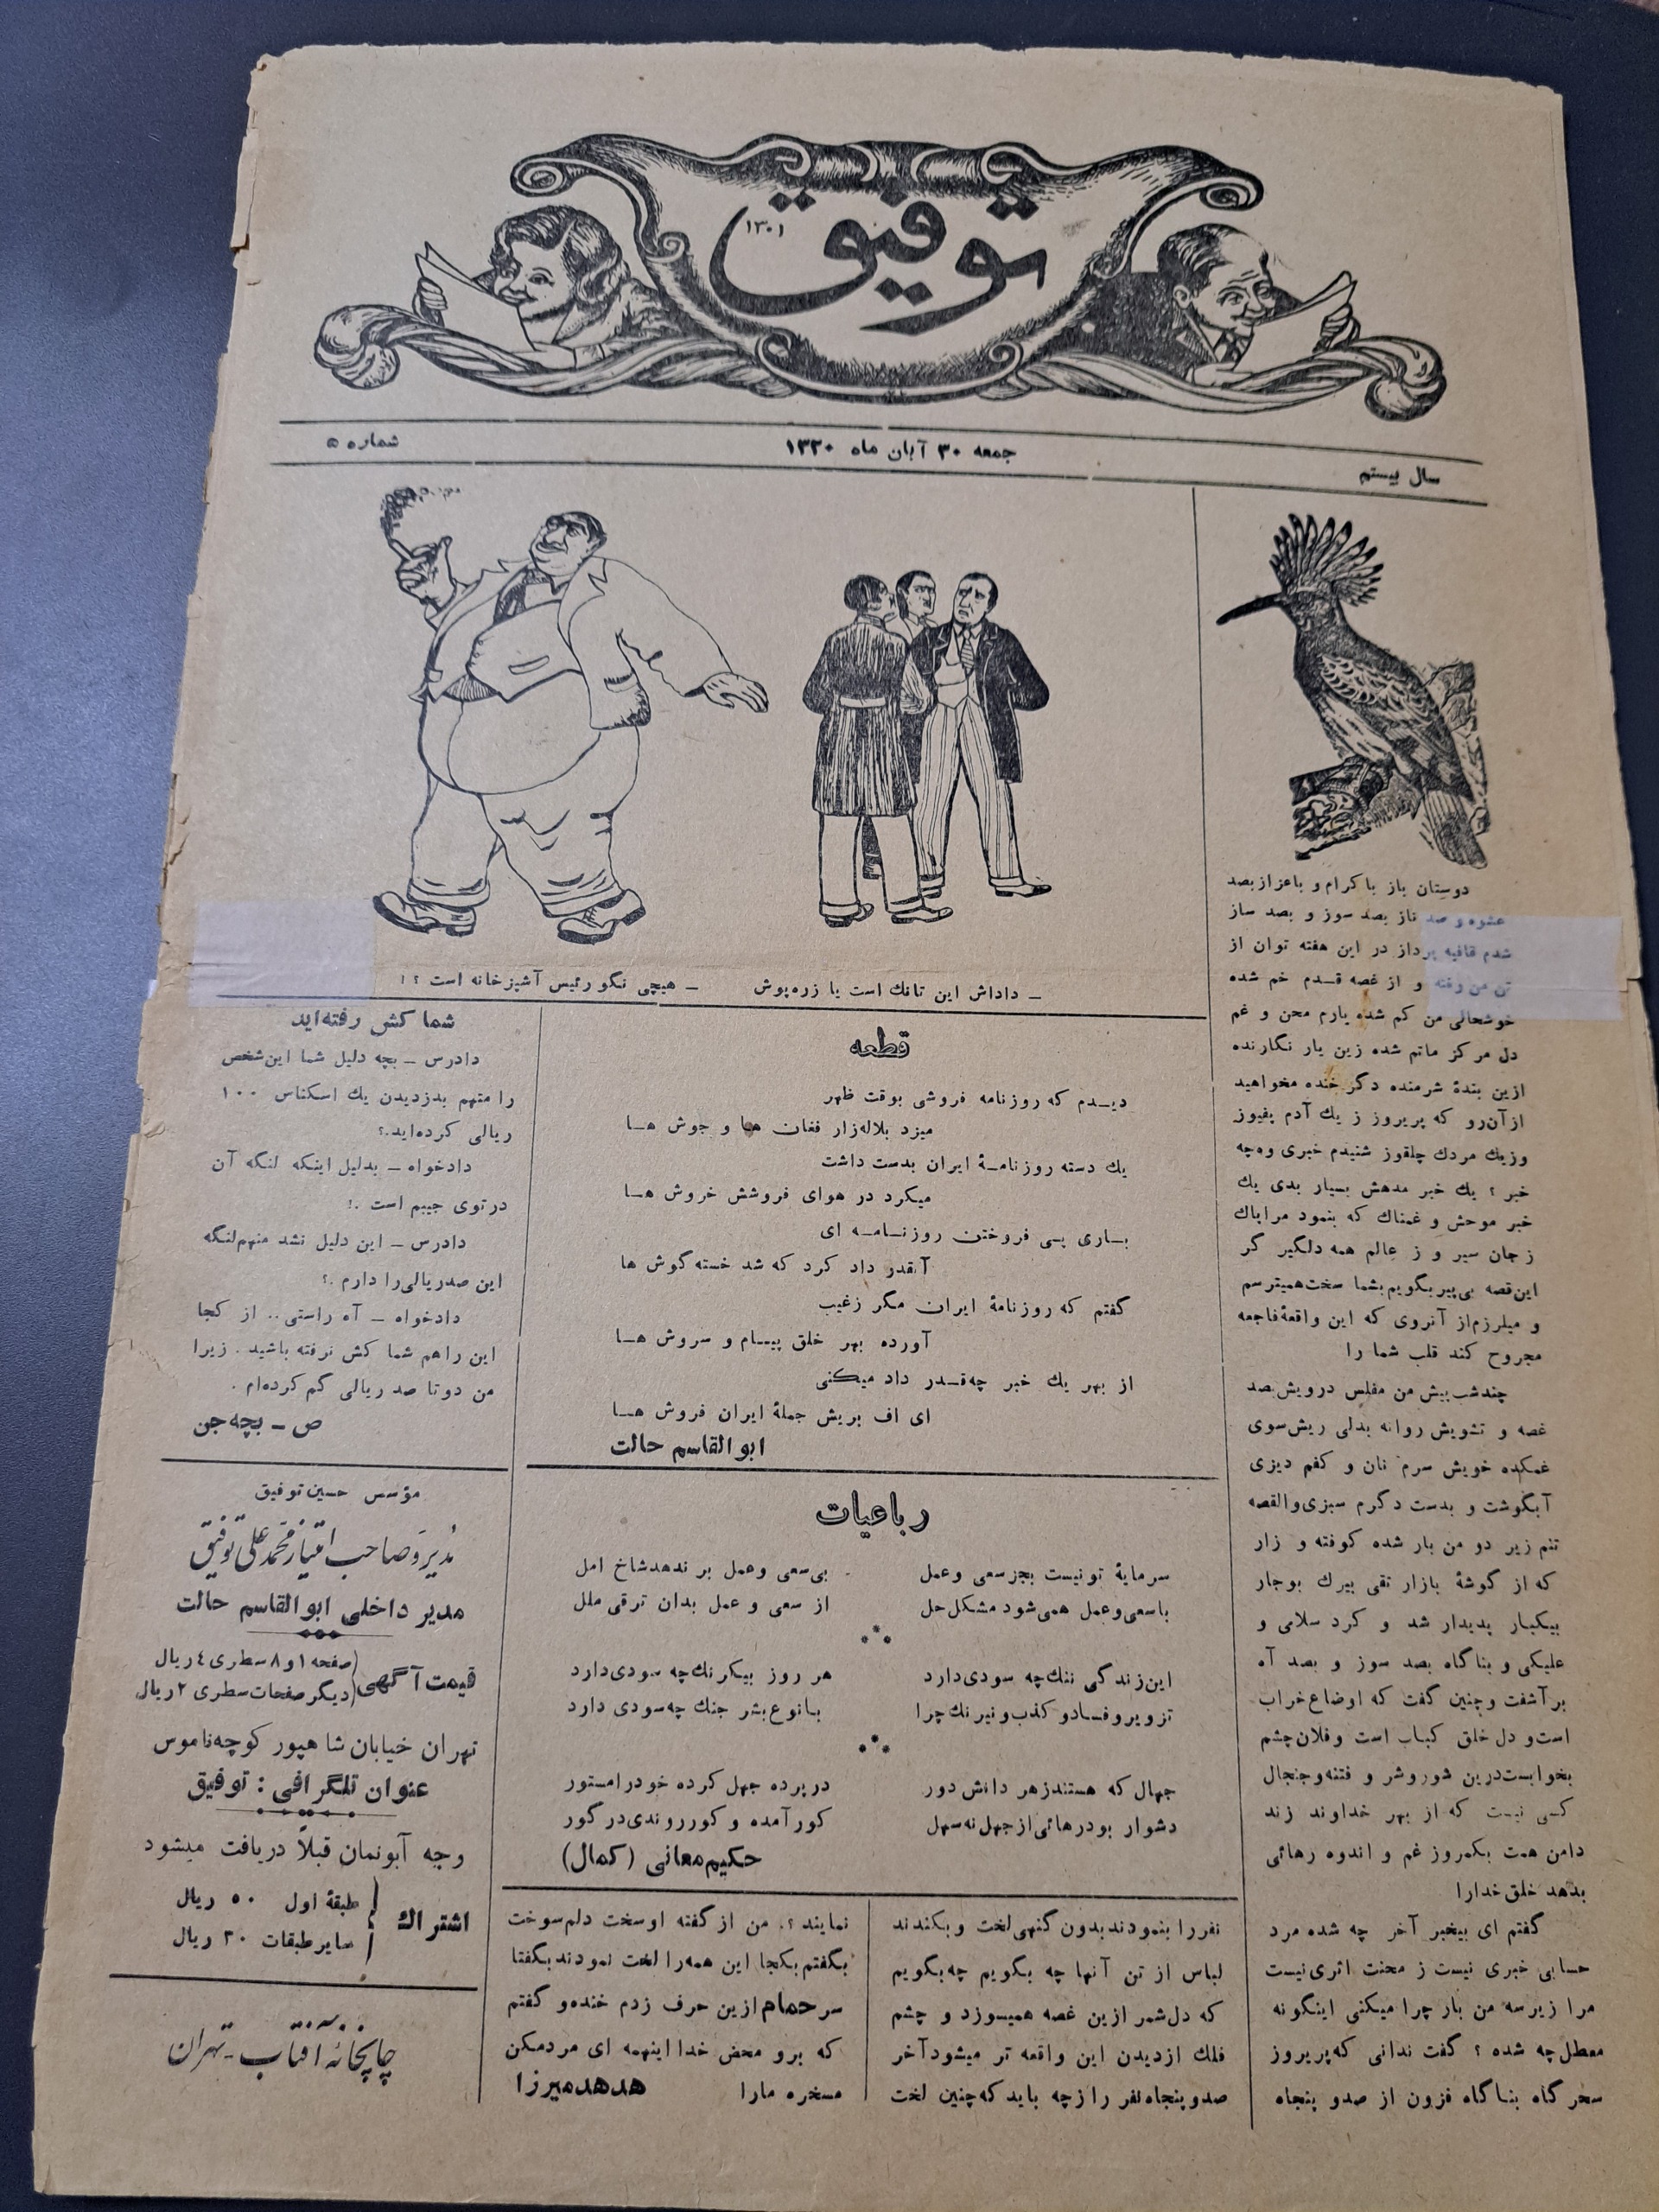 توفیق
۱۳۰۱
سال بیستم
جمعه ۳۰ آبان ماه ۱۳۲۰
شماره ۵
دوستان باز باکرام و باعزاز بصد
عشوه و صد ناز بصد سوز و بصد ساز
شدم قافیه پرداز در این هفته توان از
تن من رفته و از غصه قدم خم شده
خوشحالی من کم شده یارم محن و غم
دل مرکز ماتم شده زین یار نگارنده
ازین بندهٔ شرمنده دگر خنده مخواهید
از آن رو که پریروز ز یك آدم پفیوز
وزیك مردك چلقوز شنیدم خبری وه چه
خبر ؟ یك خبر مدهش بسیار بدی یك
خبر موحش و غمناك که بنمود مرا پاك
ز جان سیر و ز عالم همه دلگیر گر
این قصه بی پیر بگویم بشما سخت همیترسم
و میلرزم از آنروی که این واقعهٔ فاجعه
مجروح کند قلب شما را
چند شب پیش من مفلس درویش بصد
غصه و تشویش روانه بدلی ریش سوی
غمکده خویش سرم نان و کفم دیزی
آبگوشت و بدست دگرم سبزی والقصه
تنم زیر دو من بار شده کوفته و زار
که از گوشهٔ بازار تقی بیرك بوجار
بیکبار پدیدار شد و کرد سلامی و
علیکی و بناگاه بصد سوز و بصد آه
بر آشفت و چنین گفت که اوضاع خراب
است و دل خلق کباب است و فلان چشم
بخوابست درین شوروشر و فتنه و جنجال
کسی نیست که از بهر خداوند زند
دامن همت بکمر وز غم و اندوه رهائی
بدهد خلق خدا را
گفتم ای بیخبر آخر چه شده مرد
حسابی خبری نیست ز محنت اثری نیست
مرا زیر سه من بار چرا میکنی اینگونه
معطل چه شده ؟ گفت ندانی که پریروز
سحر گاه بناگاه فزون از صدو پنجاه
نفر را بنمودند بدون گنهی لخت و بکندند
لباس از تن آنها چه بگویم چه بگویم
که دل شمر ازین غصه همیسوزد و چشم
فلك از دیدن این واقعه تر میشود آخر
صدو پنجاه نفر را ز چه باید که چنین لخت
نمایند ؟. من از گفته او سخت دلم سوخت
بگفتم بکجا این همه را لخت نمودند بگفتا
سر حمام ازین حرف زدم خنده و گفتم
که برو محض خدا اینهمه ای مرد مکن
مسخره ما را
هدهد میرزا
ـ داداش این تانك است یا زره پوش
ـ هیچی نگو رئیس آشپزخانه است ؟!
قطعه
دیـدم که روزنامه فروشی بوقت ظهر
میزد بلاله زار فغان هـا و جوش هـا
یك دسته روزنامـهٔ ایران بدست داشت
میکرد در هوای فروشش خروش هـا
بـاری پـی فروختن روزنـامـه ای
آنقدر داد کرد که شد خسته گوش ها
گفتم که روزنامهٔ ایران مگر زغیب
آورده بهر خلق پیـام و سروش هـا
از بهر یك خبر چه قـدر داد میکنی
ای اف بریش جملهٔ ایران فروش هـا
ابوالقاسم حالت
رباعیات
سرمایهٔ تو نیست بجز سعی و عمل
بی سعی و عمل بر ندهد شاخ امل
با سعی و عمل همی شود مشکل حل
از سعی و عمل بدان ترقی ملل
این زندگی ننك چه سودی دارد
هر روز بیکر نك چه سودی دارد
تزویر و فساد و کذب و نیرنك چرا
با نوع بشر جنك چه سودی دارد
جهال که هستند ز هر دانش دور
در پرده جهل کرده خود را مستور
دشوار بود رهائی از جهل نه سهل
کور آمده و کور روندی در گور
حکیم معانی (کمال)
شما کش رفته اید
دادرس ـ بچه دلیل شما این شخص
را متهم بدزدیدن یك اسکناس ۱۰۰
ریالی کرده اید.؟
دادخواه ـ بدلیل اینکه لنگه آن
در توی جیبم است .!
دادرس ـ این دلیل نشد منهم لنگه
این صد ریالی را دارم .؟
دادخواه ـ آه راستی.. از کجا
این را هم شما کش نرفته باشید . زیرا
من دو تا صد ریالی گم کرده ام .
ص ـ بچه جن
مؤسس حسین توفیق
مدیر و صاحب امتیاز محمد علی توفیق
مدیر داخلی ابوالقاسم حالت
قیمت آگهی (صفحه ۱ و ۸ سطری ٤ ریال
(دیگر صفحات سطری ۲ ریال
تهران خیابان شاهپور کوچه ناموس
عنوان تلگرافی : توفیق
وجه آبونمان قبلاً دریافت میشود
اشتراك
طبقهٔ اول ۵۰ ریال
سایر طبقات ۳۰ ریال
چاپخانه آفتاب ـ تهران